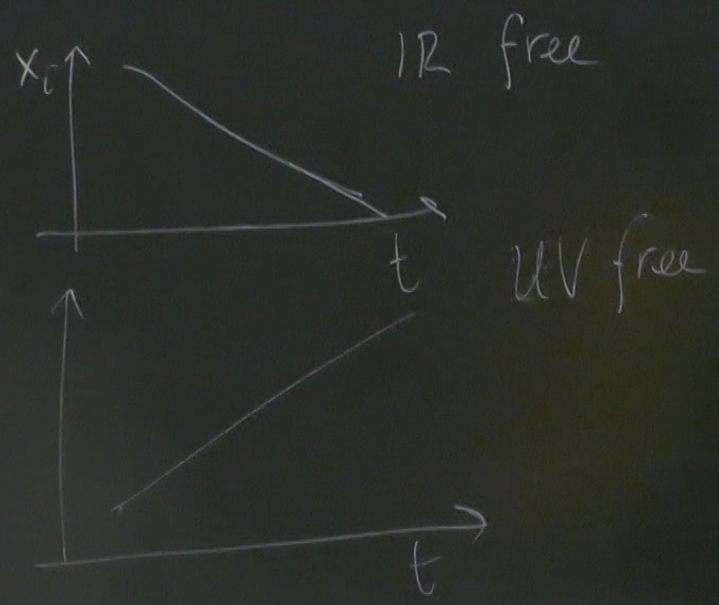 x_i
IR free
t
UV free
t